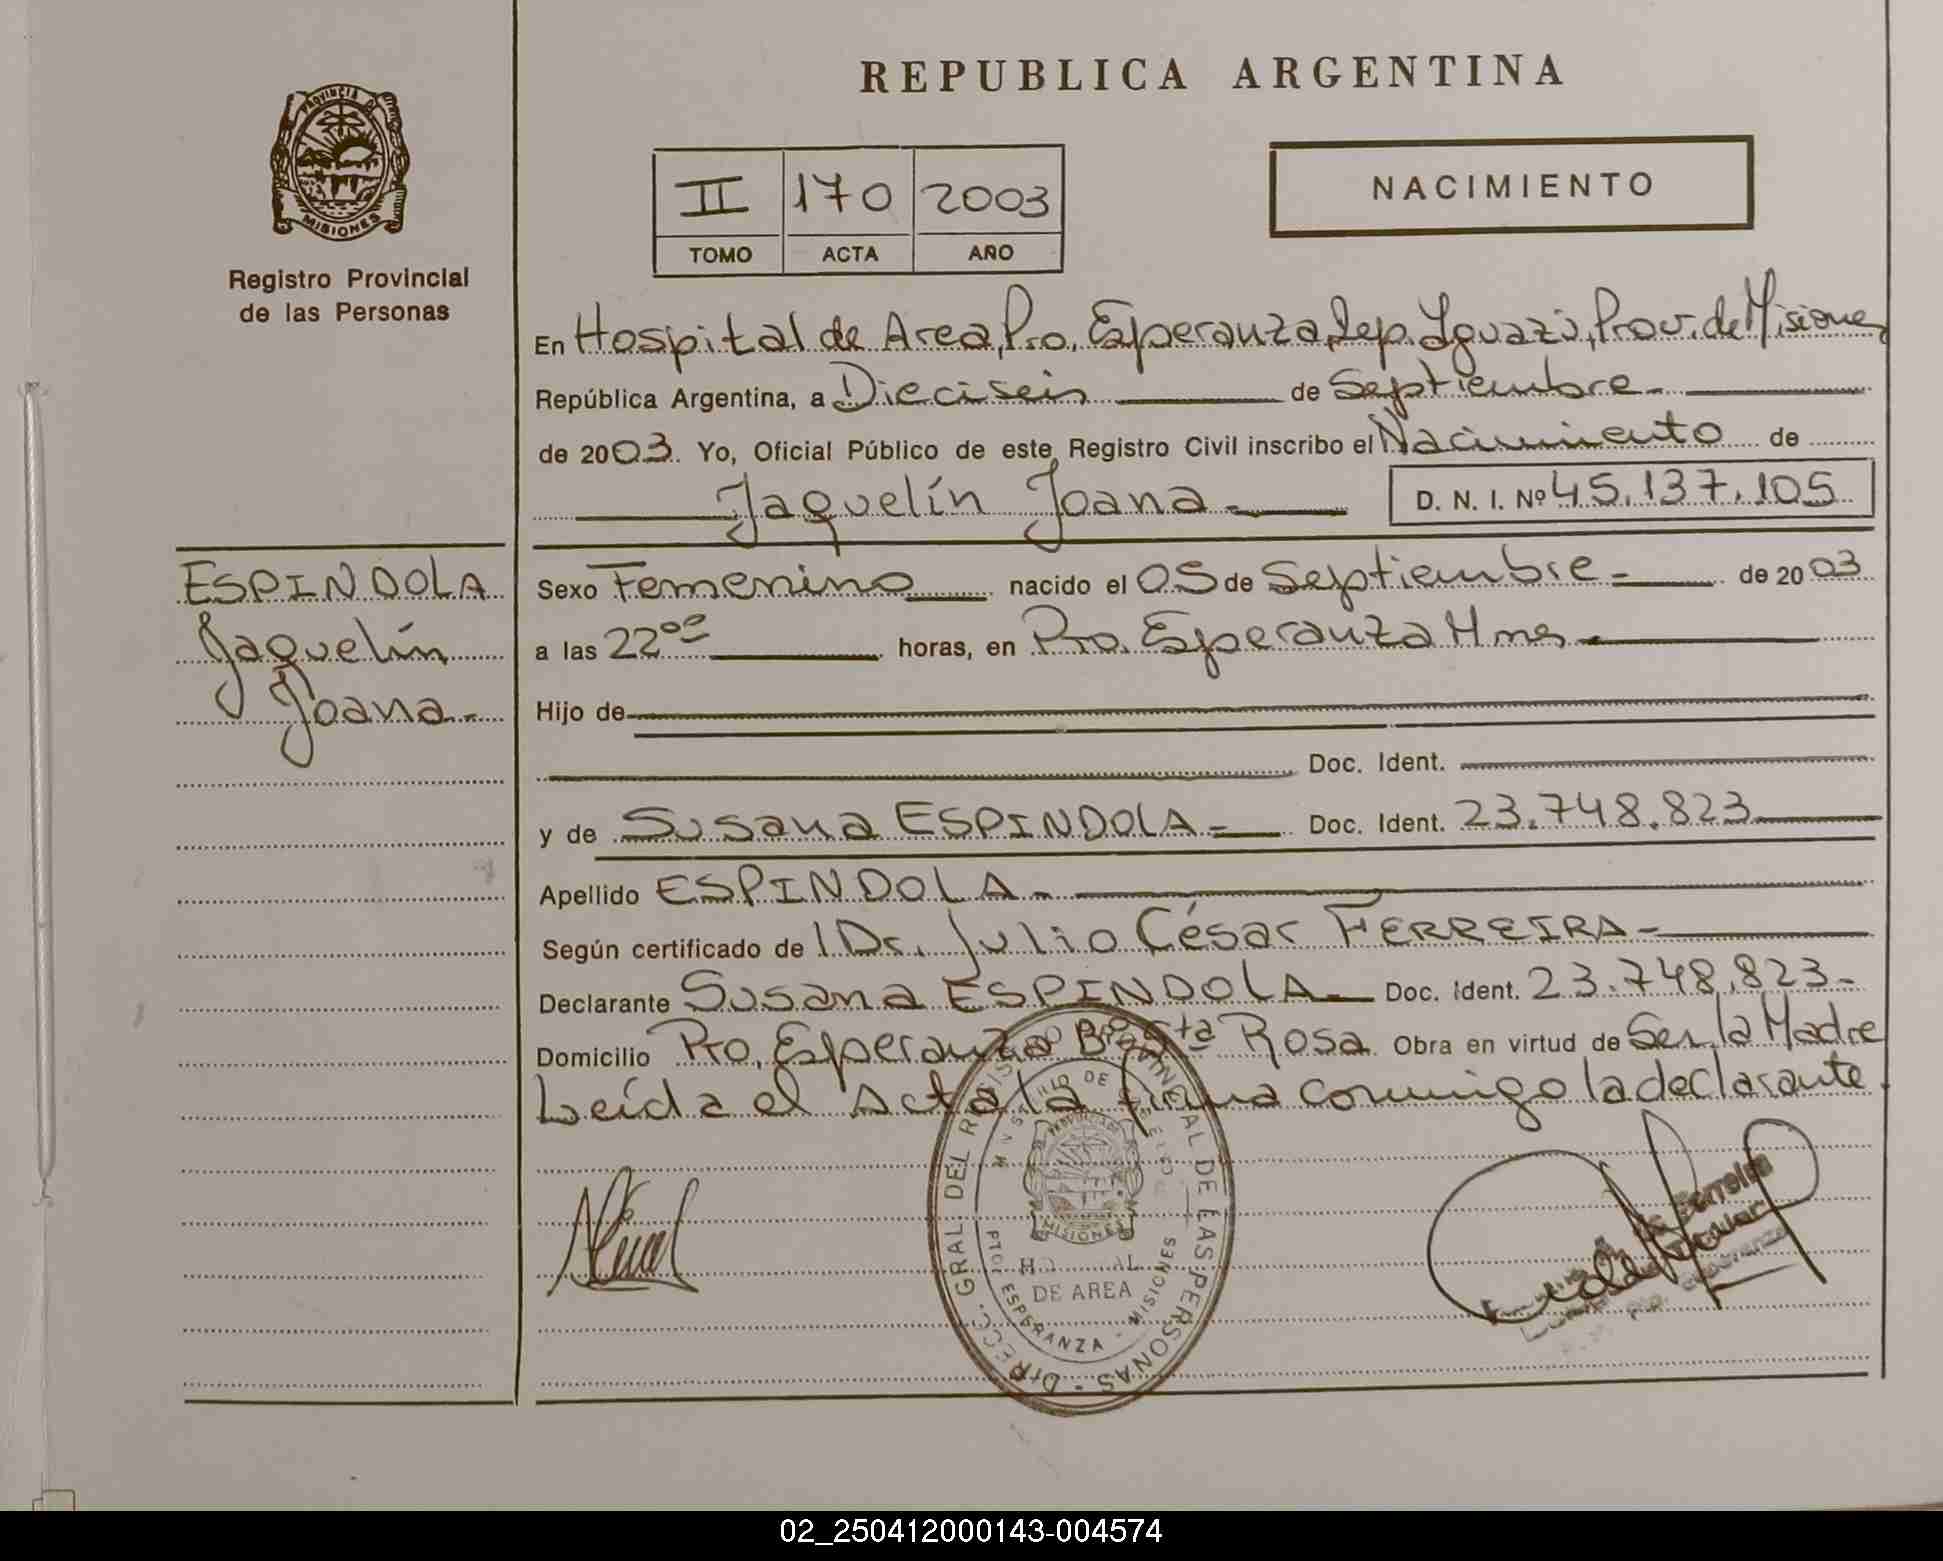 REPUBLICA ARGENTINA
PROVINCIA DE
MISIONES
Registro Provincial
de las Personas
II 170 2003
TOMO ACTA AÑO
NACIMIENTO
En Hospital de Area, Pto. Esperanza, Dep. Iguazú, Prov. de Misiones
República Argentina, a Dieciseis de Septiembre.-
de 2003. Yo, Oficial Público de este Registro Civil inscribo el Nacimiento de
Jaquelín Joana.- D. N. I. Nº 45.137.105
ESPINDOLA
Jaquelín
Joana.-
Sexo Femenino nacido el 05 de Septiembre.- de 2003
a las 22ºº horas, en Pto. Esperanza Mnes.-
Hijo de
Doc. Ident.
y de Susana ESPINDOLA.- Doc. Ident. 23.748.823
Apellido ESPINDOLA.-
Según certificado de Dr. Julio César FERREIRA.-
Declarante Susana ESPINDOLA.- Doc. Ident. 23.748.823.-
Domicilio Pto. Esperanza Bº Sta Rosa. Obra en virtud de Ser la Madre
Leída el Acta la firma conmigo la declarante.
DIRECC. GRAL. DEL REGISTRO PROVINCIAL DE LAS PERSONAS
MINISTERIO DE
PROVINCIA DE
MISIONES
HOSPITAL
DE AREA
PTO. ESPERANZA - MISIONES
02_250412000143-004574